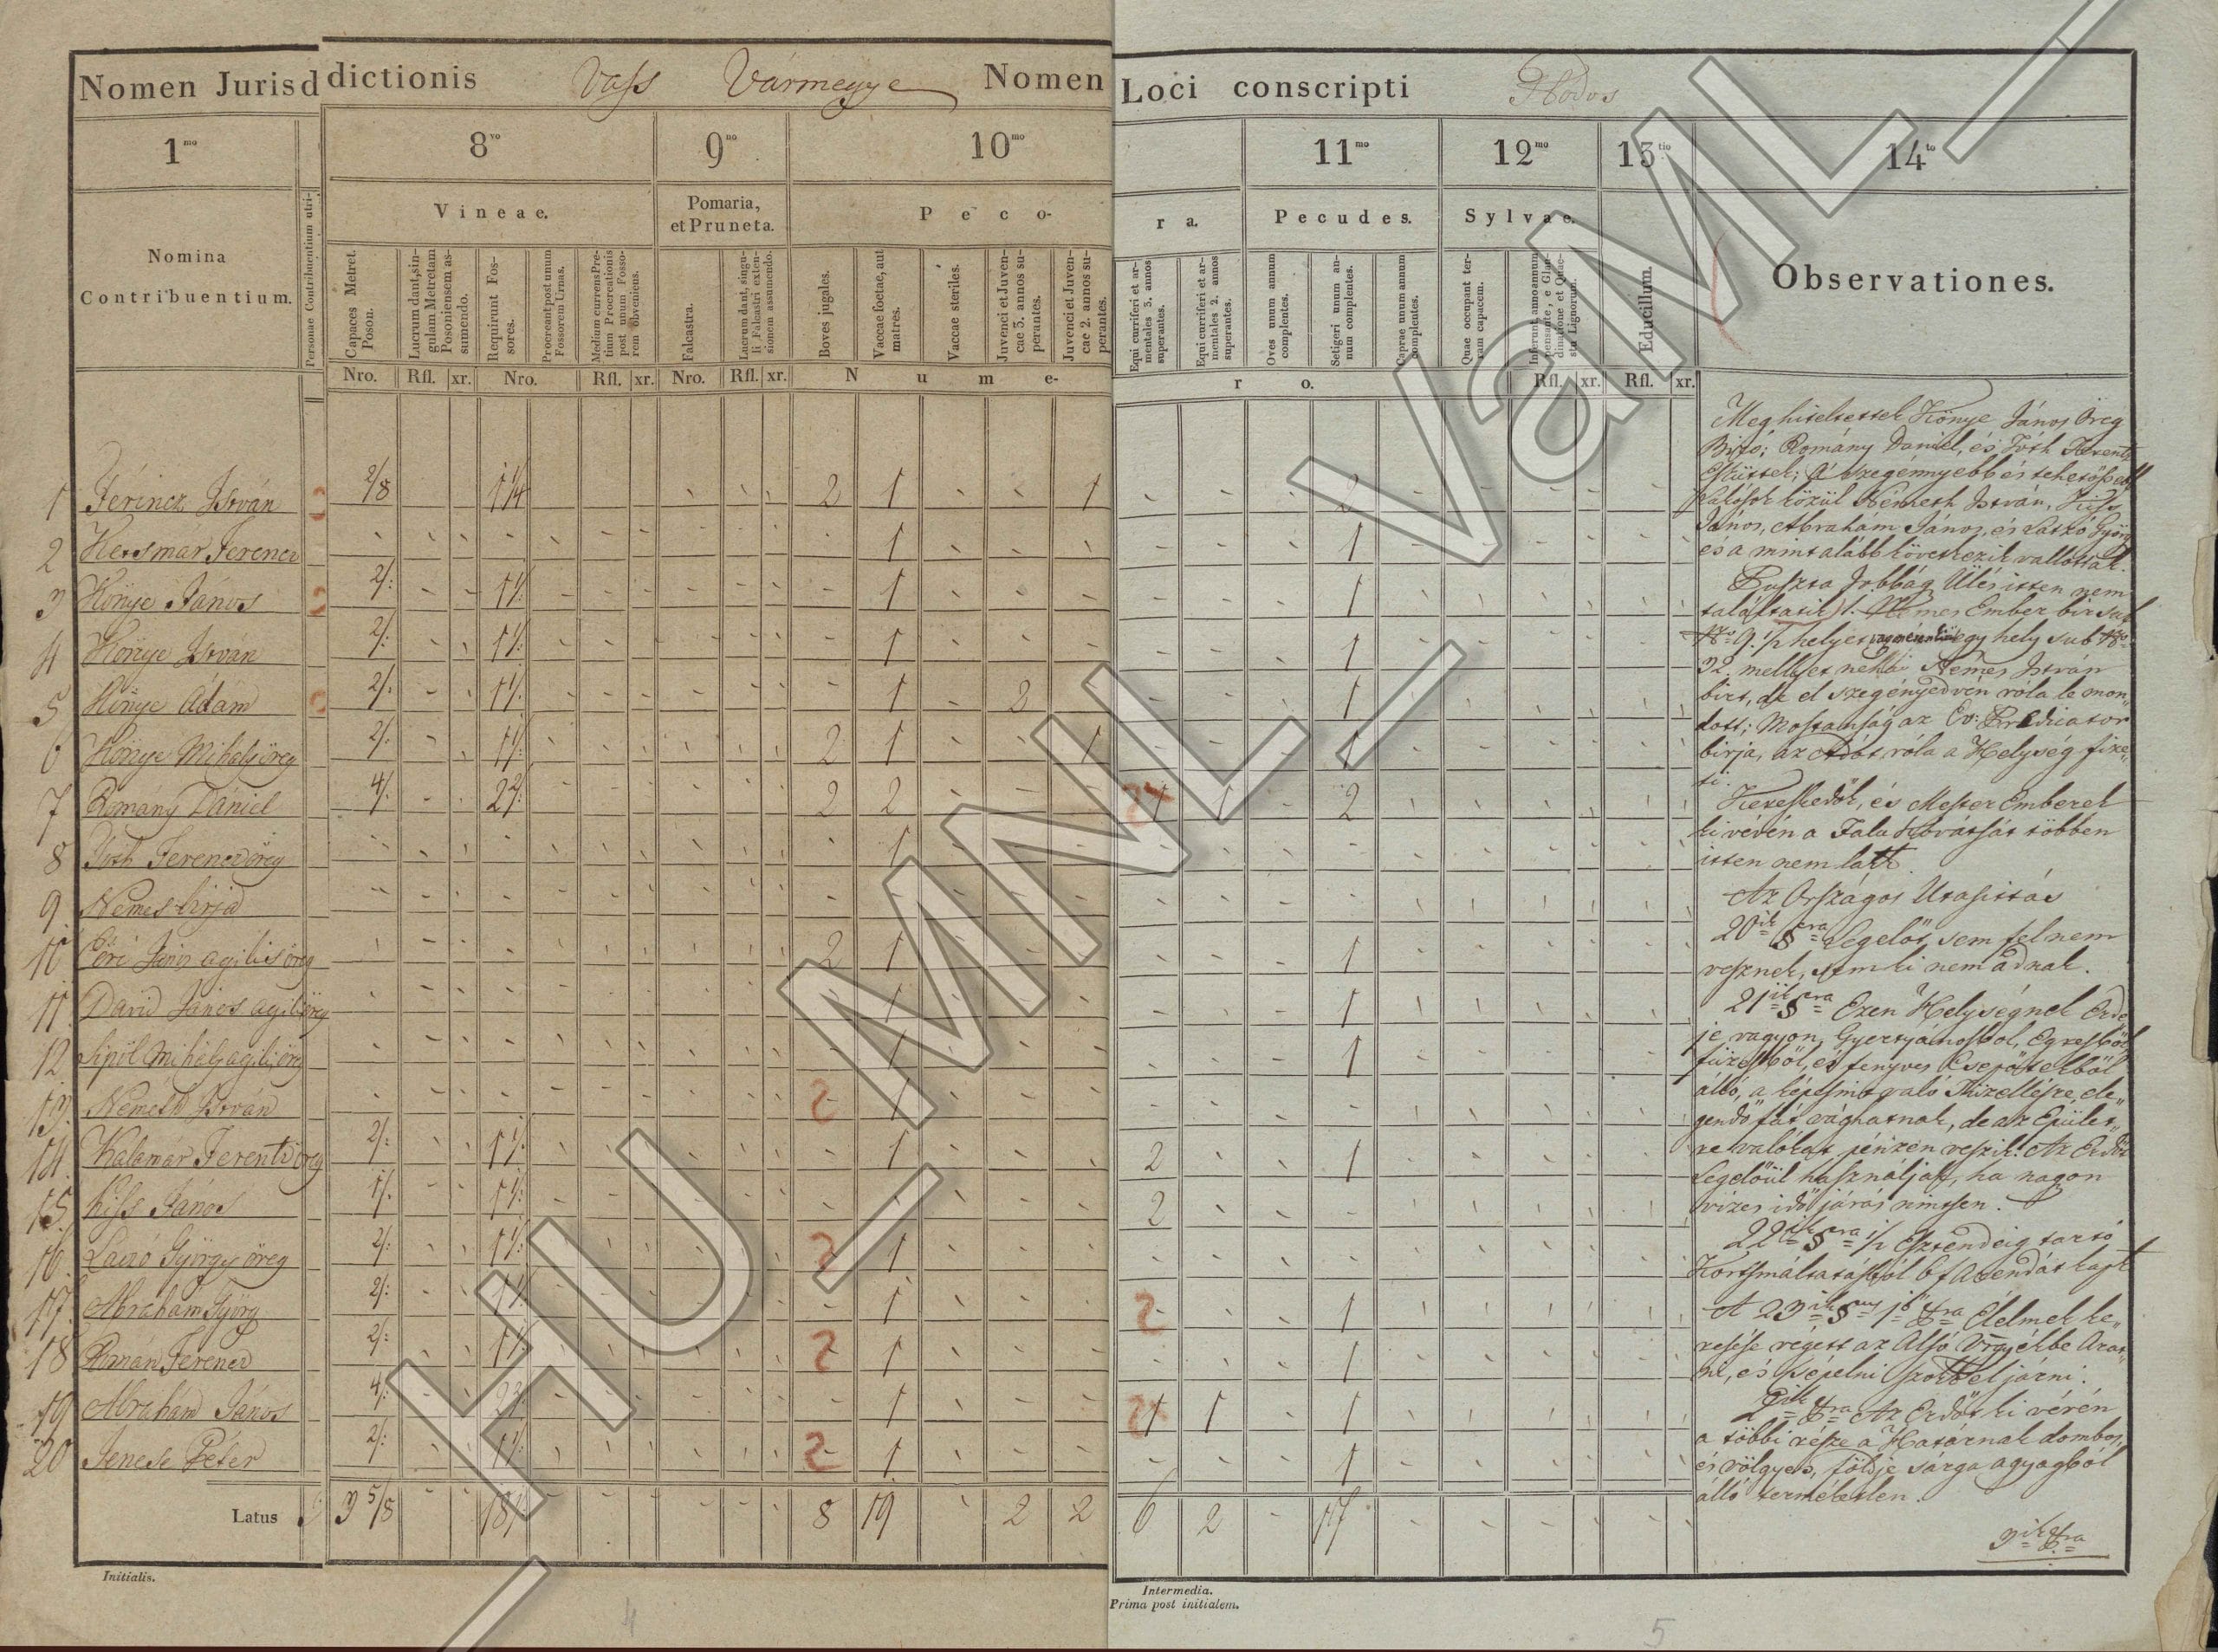 Nomen Jurisd dictionis Vass Vármegye Nomen Loci conscripti Hodos
1mo 8vo 9no 10mo 11mo 12mo 13tio 14to
Nomina Contribuentium.
Personae Contribuentium utri-
Vineae.
Pomaria, et Pruneta.
Peco-
ra.
Pecudes.
Sylvae.
Educillum.
Observationes.
Capaces Metret. Poson.
Lucrum dant, singulam Metretam Posoniensem assumendo.
Requirunt Fossores.
Procreant post unum Fossorem Urnas.
Medium currens Pretium Procreationis post unum Fossorem obveniens.
Falcastra.
Lucrum dant, singuli Falcastri extensionem assumendo.
Boves jugales.
Vaccae foetae, aut matres.
Vaccae steriles.
Juvenci et Juvencae 3. annos superantes.
Juvenci et Juvencae 2. annos superantes.
Equi curriferi et armentales 3. annos superantes.
Equi curriferi et armentales 2. annos superantes.
Oves unum annum complentes.
Setigeri unum annum complentes.
Caprae unum annum complentes.
Quae occupant terram capacem.
Nro. Rfl. xr. Nro. Rfl. xr. Nro. Rfl. xr. N u m e- r o. Rfl. xr. Rfl. xr.
1 Ferincz István 2/8 1 1/4 2 1 1 2
2 Ketsmár Ferencz 1 1
3 Könye János 2/: 1 1/: 1 1
4 Könye István 2/: 1 1/: 1 1
5 Könye Ádám 2/: 1 1/: 1 2 1
6 Könye Mihály öreg 2/: 1 1/: 2 1 1 1
7 Romány Dániel 4/: 2 2/: 2 2 1 1 2
8 Tóth Ferencz öreg 1
9 Nemes birja
10 Őri János agilis öreg 2 1 1
11 Dávid János agilis öreg 1 1
12 Sipöl Mihály agilis öreg 1 1
13 Németh István 2 1
14 Kalamár Ferentz öreg 2/: 1 1/: 1 2 1
15 Kiss János 1/: 1 1/: 2
16 Laczó György öreg 2/: 1 1/: 2 1
17 Ábrahám György 2/: 1 1/: 1 2 1
18 Ferencz 2/: 1 1/: 2 1 1
19 Ábrahám János 4/: 2 2/: 1 1 1 1
20 Jenese Péter 2/: 1 1/: 2 1 1
Latus 3 5/8 18 8 19 2 2 6 2 17
Meg hiteltettek Könye János Öreg
Biró; Romány Daniel, és Tóth Ferentz
Esküttek; A szegénnyebb és tehetőssebb
Lakosok közül Németh István, Kiss
János, Abrahám János, és Latzó György
és a mint alább következik vallottak.
Puszta Jobbág Ülés itten nem
találtatik. Nemes Ember bir sub
Nro 9. 1/2 helyet, egy hely sub Nro
32. mellyet néhai Nemes István
birt, de el szegényedvén róla le mon„
dott; Mostanság az Ev: Prédicator
birja, az Adót róla a Helység fize„
ti.
Kereskedők, és Mester Emberek
ki vévén a Falu Kovátsát többen
itten nem lakk.
Az Országos Utasitás
20ik §ra Legelőt sem fel nem
vesznek, sem ki nem adnak.
21ik §ra Ezen Helységnek Erde„
je vagyon Gyertyánosbol, Egresből
füzesből, és fenyves Csepötékből
álló, a képesint való tüzellésre ele„
gendő fát vághatnak, de az Epület„
re valókat pénzen veszik. Az Erdőt
Legelőül használják, ha nagon
vizes idő járás nintsen.
22ik §ra 1/2 Esztendeig tartó
Kortsmáltatásból 6 f Arendát kapk
A 23ik §us 1ő ra Élelmek ke„
resése végett az Alsó Vrgyékbe Arat„
ni, és tsépelni szoktk el járni.
2ik ra Az Erdőt ki vévén
a többi része a Határnak dombos,
és völgyes, földje sárga agyagból
álló terméketlen.
3ik ra
Initialis.
Intermedia.
Prima post initialem.
4
5
HU_MNL_VaML_